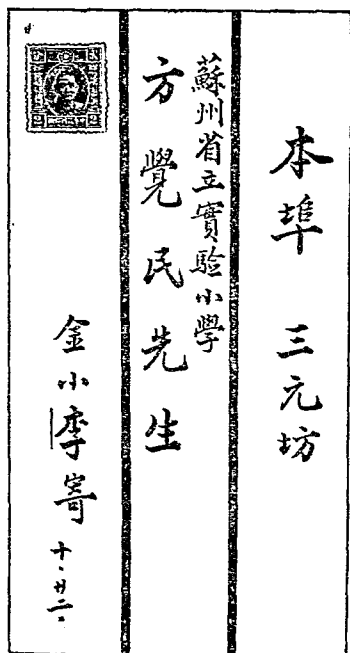 本埠 三元坊
蘇州省立實驗小學
方覺民先生
金小李寄 十、廿二、